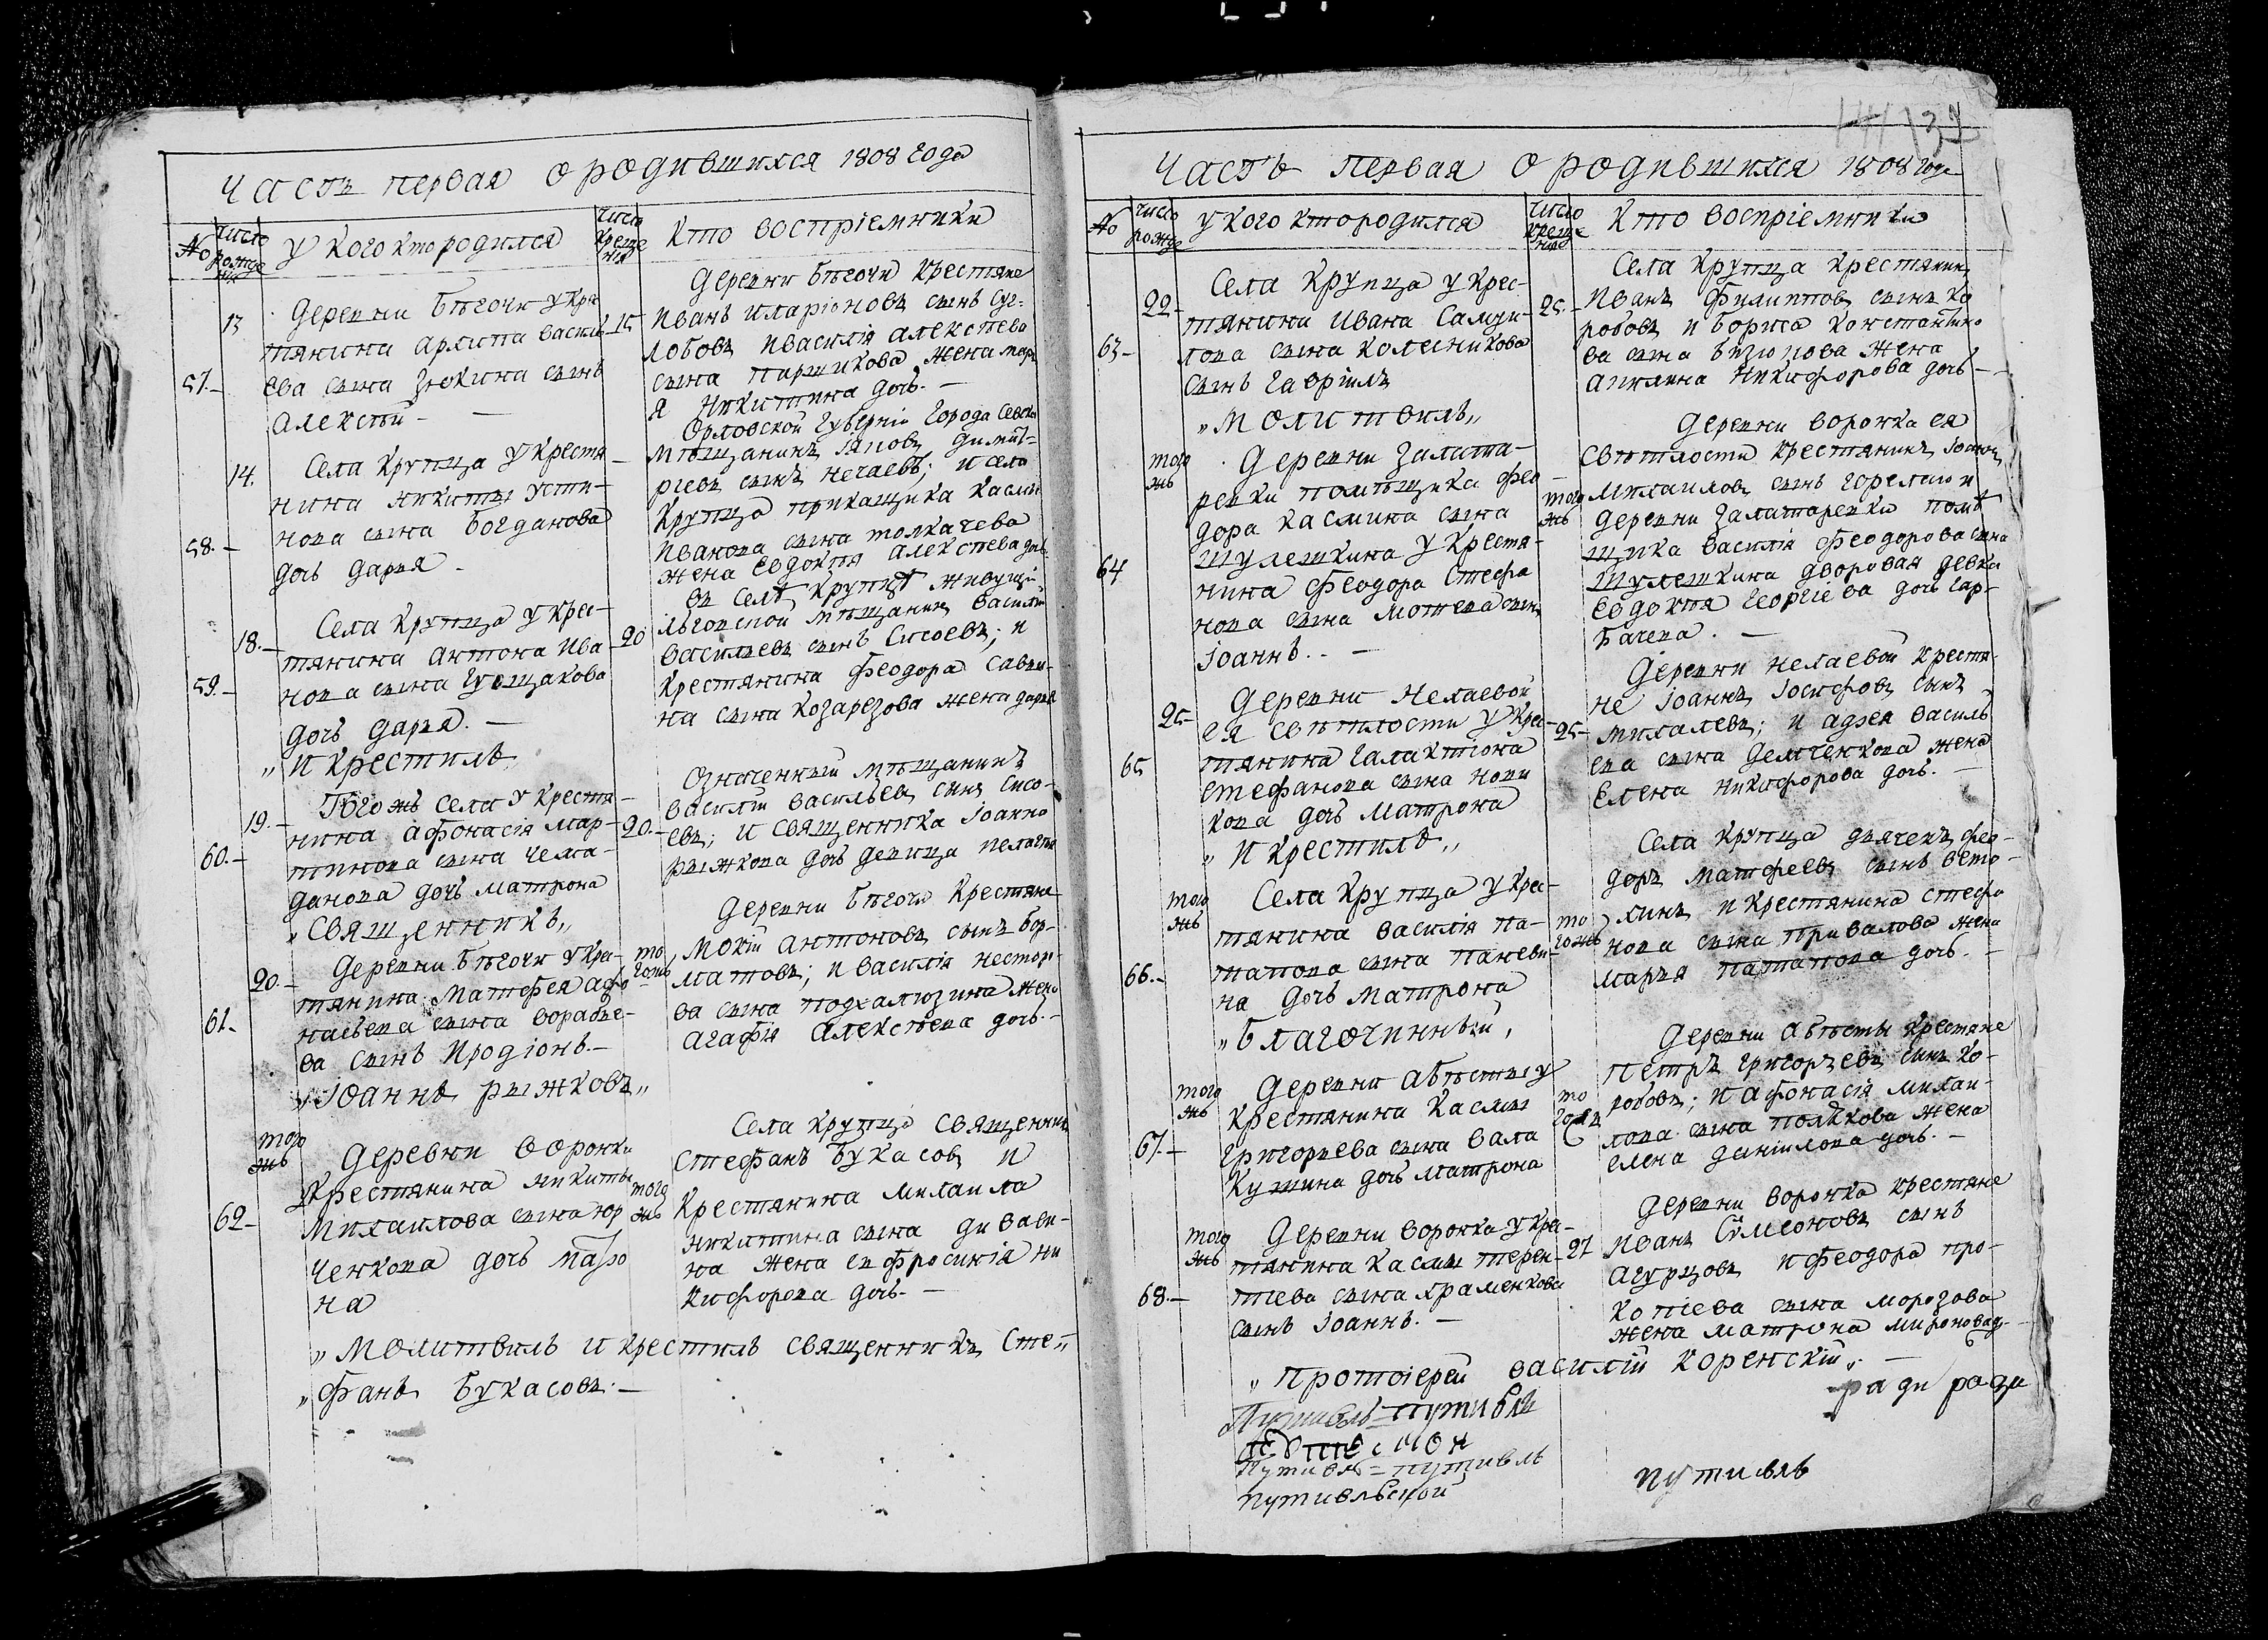 Часть первая о родившихся 1808 года
№
число рожде ния
у кого кто родился
число креще ния
кто восприемники
57.
13
Деревни Бѣгочи у кре
стянина Архипа Василь
ева сына Зюкина сынъ
Алексѣй
15
Деревни Бѣгочи крестяне
Иванъ Иларіоновъ сынъ Суг-
лобовъ и Василія Алексѣева
сына Паршикова жена Марь
я Никитина дочь.
58.
14.
Села Крупца у крестя
нина Никиты Усти-
нова сына Богданова
дочь Дарья
Орловской губерніи города Севска
мѣщанинъ Іяковъ Димит-
ріевъ сынъ Нечаевъ; и села
Крупца прикащика Касмы
Иванова сына Толкачева
жена Евдокія Алексѣева дочь.
59.
18.
Села Крупца у крес-
тянина Антона Ива
нова сына Гущакова
дочь Дарья.
„И крестилъ
20
въ селѣ Крупцѣ живущій
льговской мѣщанинъ Василій
Васильевъ сынъ Сисоевъ; и
крестянина Феодора Савви-
на сына Козарезова жена Дарья
60.
19.
Тогожъ села у крестя-
нина Афонасія Мар-
тинова сына Чема-
данова дочь Матрона
„Священникъ„
20.
Означенный мѣщанинъ
Василій Васильевъ сынъ Сисо-
евъ; и священника Іоанна
Рыжкова дочь девица Пелагея
61.
20.
Деревни Бѣгочи у кре-
стянина Матфея Афо
насьева сына Воробье-
ва сынъ Иродіонъ.
„Іоаннъ Рыжковъ„
то гожъ
Деревни Бѣгочи крестяне
Мокій Антоновъ сынъ Бор-
матовъ; и Василія Нестор-
ва сына Подхалюзина жена
Агафія Алексѣева дочь.
62
того жъ
Деревни Воронки
у крестянина Никиты
Михаилова сына Юр
ченкова дочь Матро
на
того жъ
Села Крупца священник
Стефанъ Букасовъ и
крестянина Михаила
Никитина сына Диваси-
на жена Евфросинія Ни
кифорова дочь.
„Молитвилъ и крестилъ священникъ Сте„
„фанъ Букасовъ.
Часть первая о родившихся 1808 года
№
число рожде
у кого кто родился
число креще ния
кто восприемники
63
22
Села Крупца у крес-
тянина Ивана Самуи-
лова сына Колесникова
сынъ Гавріилъ
„Молитвилъ„
25.
Села Крупца крестянин
Иванъ Филипповъ сынъ Ко
робовъ и Бориса Константино
ва сына Бизюкова жена
Акилина Никифорова дочь
64
того жъ
Деревни Залита-
ревки помѣщика Фео
дора Касмина сына
Шулешкина у крестя-
нина Феодора Стефа
нова сына Мотева сынъ
Іоаннъ.
того жъ
Деревни Воронка ея
свѣтлости крестянинъ Іоаннъ
Михаиловъ сынъ Горелой и
деревни Залитаревки помѣ
щика Василія Феодорова сына
Шулешкина дворовая девка
Евдокія Георгіева дочь Гар-
бачева.
65
25
Деревни Нелаевой
ея свѣтлости у крес-
тянина Галактіона
Стефанова сына Нови
кова дочь Матрона
„И крестилъ„
25
Деревни Нелаевой крестя-
не Іоаннъ Іосифовъ сынъ
Михалевъ; и Адрея Василь
ева сына Демченкова жена
Елена Никифорова дочь.
66.
того жъ
Села Крупца у крес-
тянина Василія Па-
тапова сына Паневи-
на дочь Матрона
„Благочинный„
то гожъ
Села Крупца дьячекъ Фео-
доръ Матфеевъ сынъ Вето-
хинъ и крестянина Стефа
нова сына Привалова жена
Марья Патапова дочь.
67.
того жъ
Деревни Абѣсты у
крестянина Касмы
Григорьева сына Бала
кушина дочь Матрона
то гожъ
Деревни Абѣсты крестяне
Петръ Григорьевъ сынъ Ко-
робовъ; и Афонасія Михаи-
лова сына Полякова жена
Елена Даніилова дочь.
68.
того жъ
Деревни Воронка у кре-
стянина Касмы Терен-
тіева сына Храменкова
сынъ Іоаннъ.
27
Деревни Воронка крестяне
Иванъ Сѵмеоновъ сынъ
Агурцовъ и Феодора Про-
копіева сына Морозова
жена Матрона Миронова д.
„Протоіерей Василій Коренскій„
ради рази
Путивль = Путивли
Путивль = путивль
путивльской
путивль